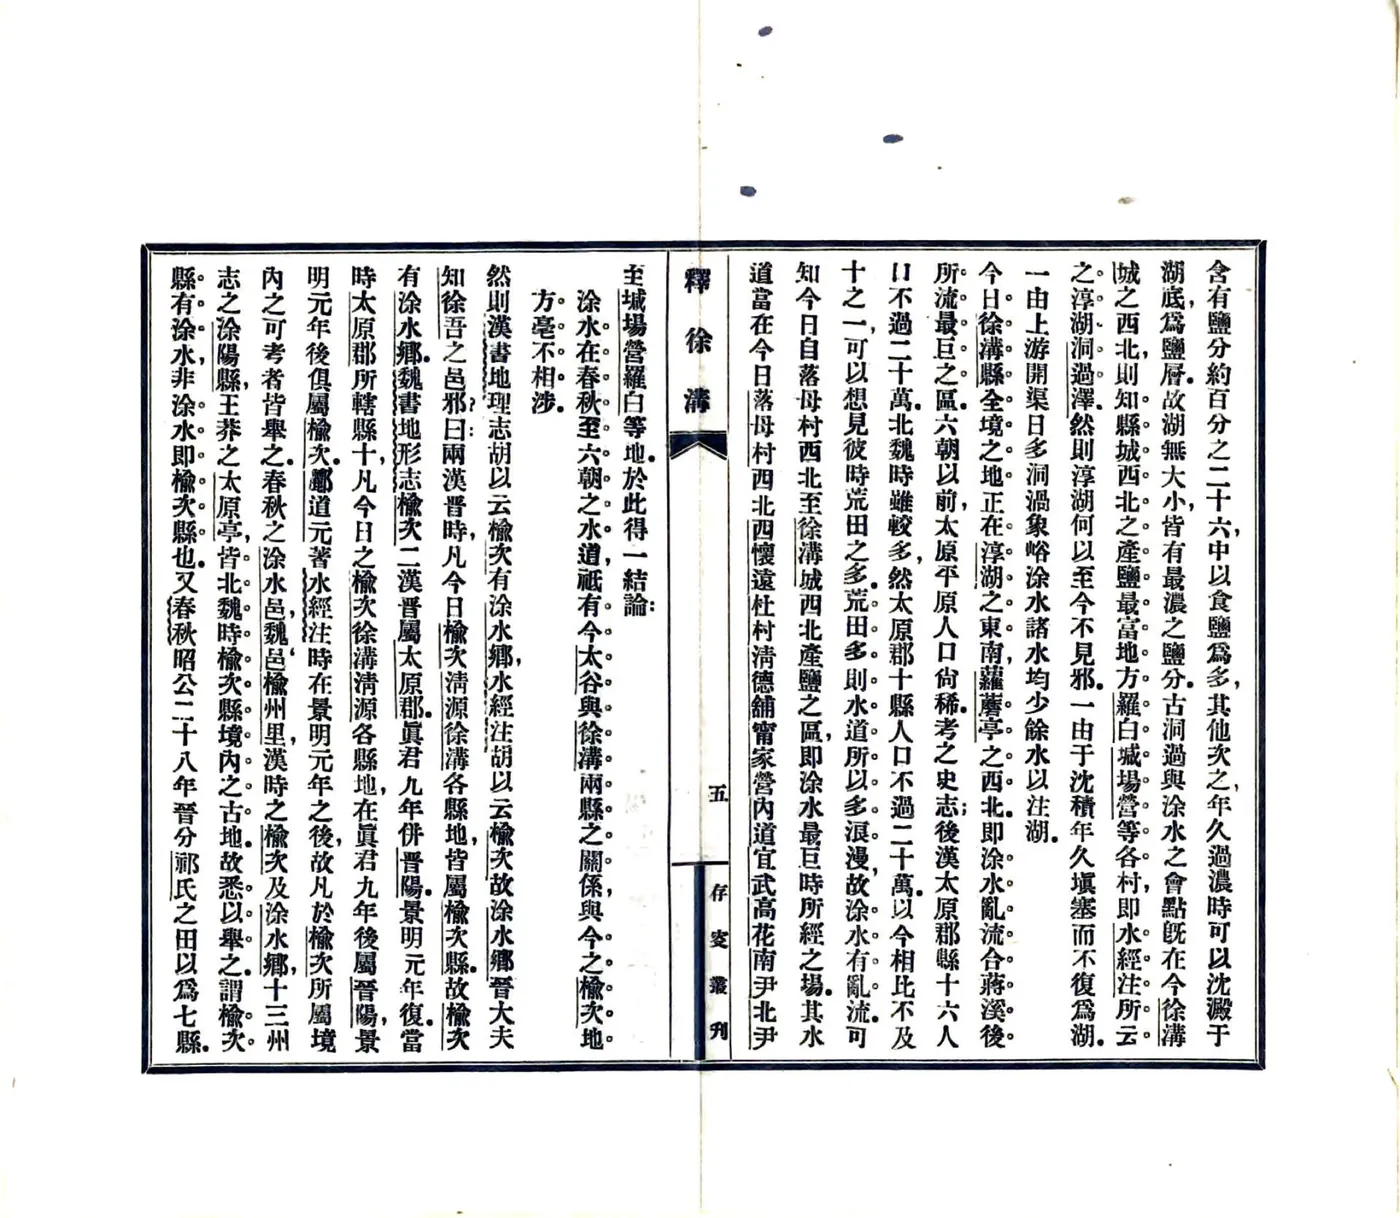 含有鹽分約百分之二十六，中以食鹽爲多，其他次之，年久過濃時可以沈澱于
湖底，爲鹽層。故湖無大小，皆有最濃之鹽分。古洞過與涂水之會點旣在今徐溝
城之西北，則知縣城西北之產鹽最富地方羅白城場營等各村，即水經注所云
之淳湖洞過澤。然則淳湖何以至今不見邪。一由于沈積年久塡塞而不復爲湖。
一由上游開渠日多洞渦象峪涂水諸水均少餘水以注湖。
今日徐溝縣全境之地正在淳湖之東南，蘿蘑亭之西北。即涂水亂流合蔣溪後
所流最巨之區。六朝以前，太原平原人口尙稀。考之史志；後漢太原郡縣十六人
口不過二十萬。北魏時雖較多，然太原郡十縣人口不過二十萬。以今相比不及
十之一，可以想見彼時荒田之多。荒田多則水道所以多浪漫，故涂水有亂流。可
知今日自落母村西北至徐溝城西北產鹽之區，即涂水最巨時所經之場。其水
道當在今日落母村西北西懷遠杜村淸德舖甯家營內道宜武高花南尹北尹
釋徐溝
五
存叢刊
至城場營羅白等地。於此得一結論：
涂水在春秋至六朝之水道，祇有今太谷與徐溝兩縣之關係，與今之楡次地
方毫不相涉。
然則漢書地理志胡以云楡次有涂水鄉，水經注胡以云楡次故涂水鄉晉大夫
知徐吾之邑邪？曰：兩漢晉時，凡今日楡次淸源徐溝各縣地，皆屬楡次縣。故楡次
有涂水鄉。魏書地形志楡次二漢晉屬太原郡。眞君九年併晉陽。景明元年復。當
時太原郡所轄縣十，凡今日之楡次徐溝淸源各縣地，在眞君九年後屬晉陽，景
明元年後俱屬楡次。酈道元著水經注時在景明元年之後，故凡於楡次所屬境
內之可考者皆舉之。春秋之涂水邑，魏邑，楡州里，漢時之楡次及涂水鄉，十三州
志之涂陽縣，王莽之太原亭，皆北魏時楡次縣境內之古地。故悉以舉之。謂楡次
縣有涂水，非涂水即楡次縣也。又春秋昭公二十八年晉分祁氏之田以爲七縣。